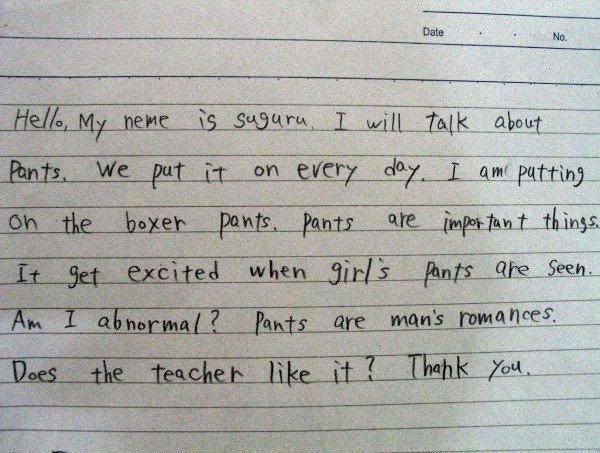 Date . . No.
Hello, My neme is suguru. I will talk about
Pants. We put it on every day. I am putting
on the boxer pants. Pants are important things.
It get excited when girl's pants are seen.
Am I abnormal? Pants are man's romances.
Does the teacher like it? Thank you.